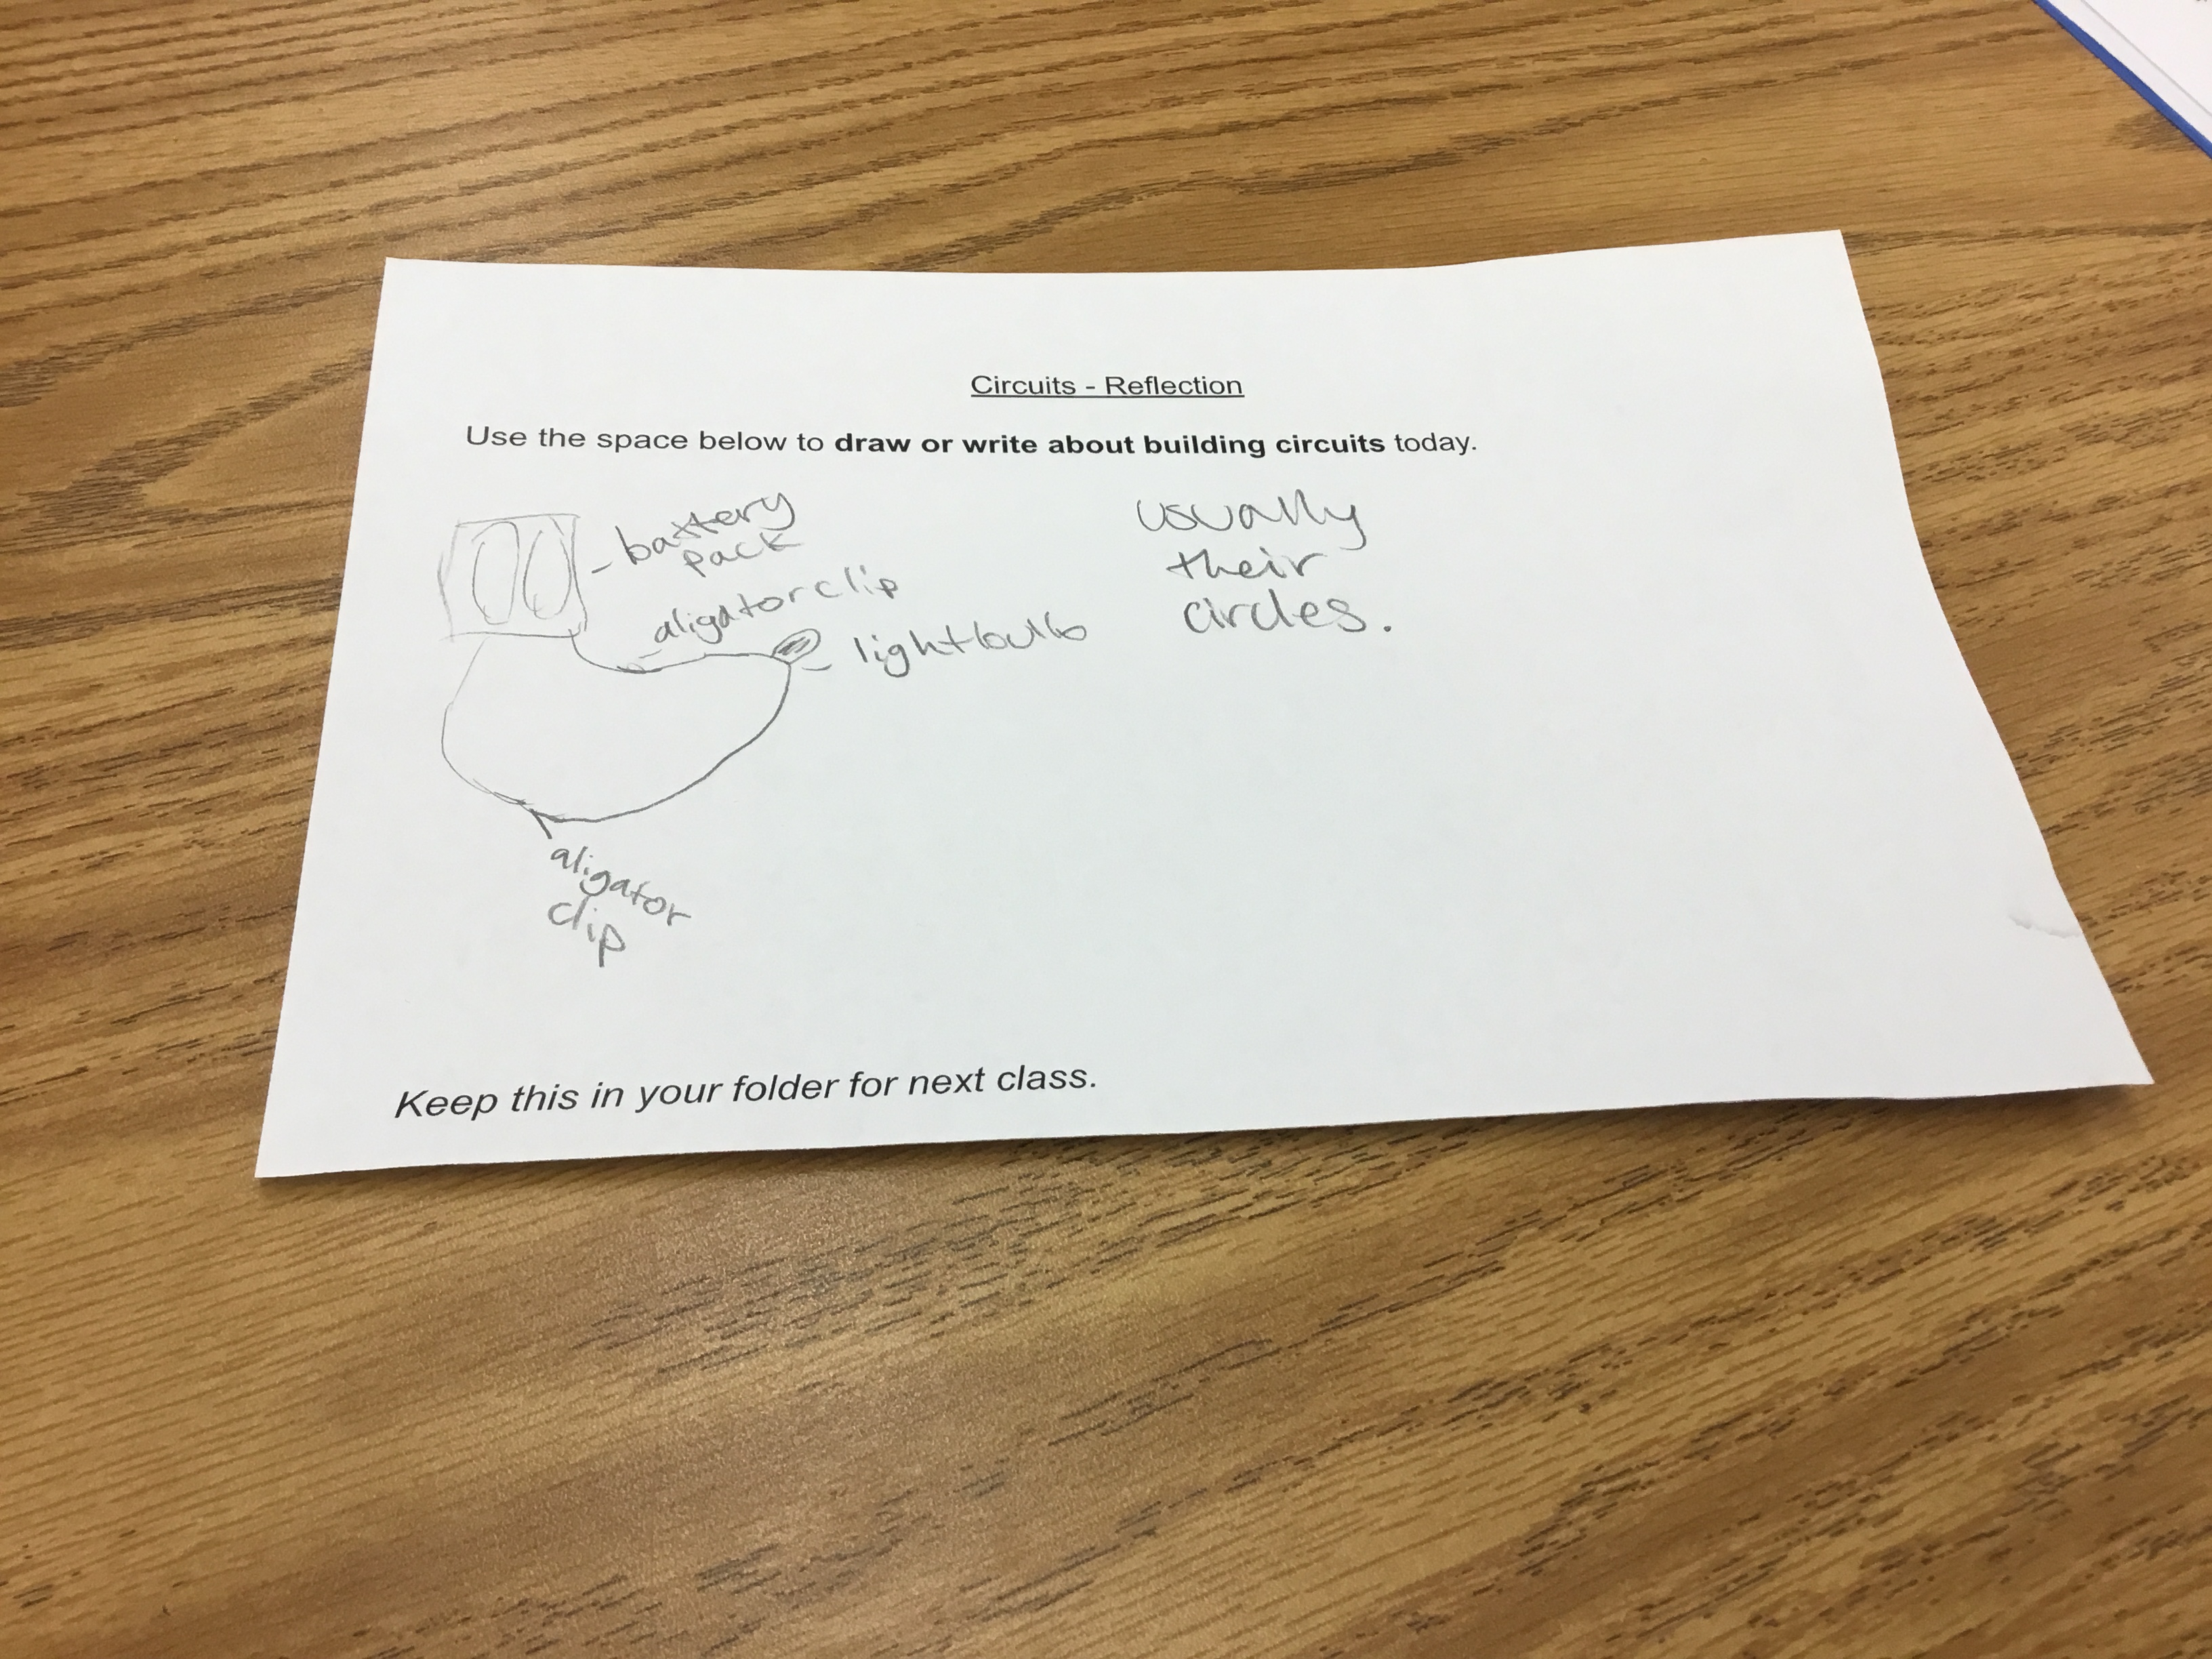 Circuits - Reflection
Use the space below to draw or write about building circuits today.
battery
pack
aligator clip
lightbulb
aligator
clip
usually
their
circles.
Keep this in your folder for next class.